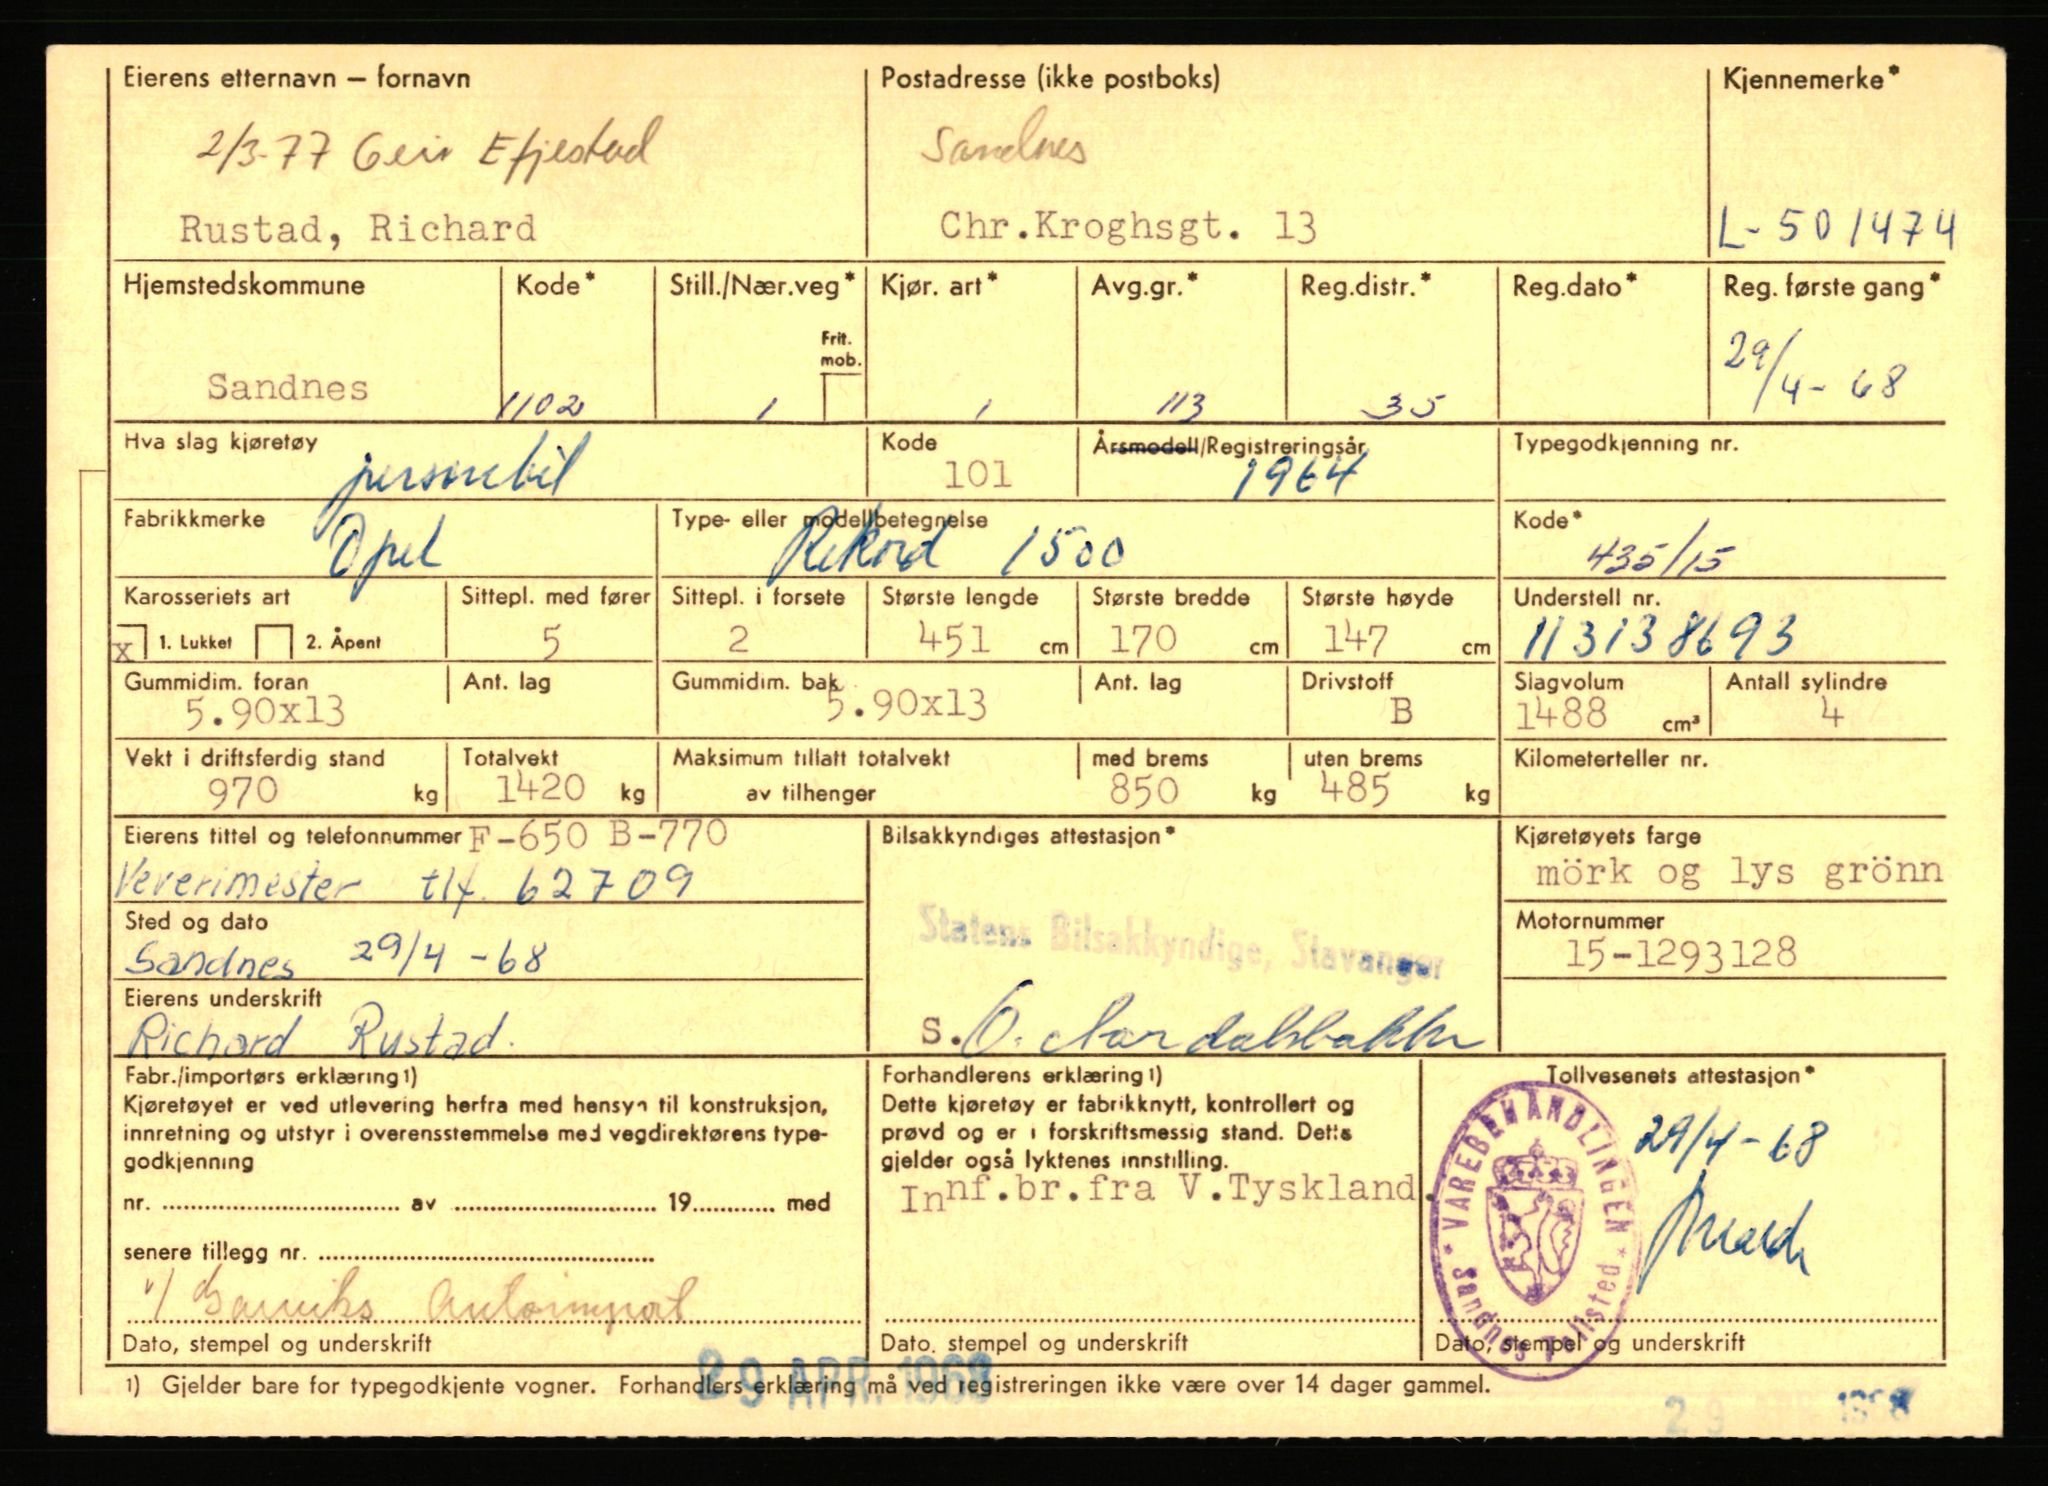 Eierens etternavn — fornavn
Postadresse (ikke postboks)
Kjennemerke*
2/3-77 Geir Efjestad
Sandnes
Rustad, Richard
Chr.Kroghsgt. 13
L-501474
Hjemstedskommune
Kode*
Still./Nær.veg*
Kjør. art*
Avg.gr.*
Reg.distr.*
Reg.dato*
Reg. første gang*
Frit. mob.
Sandnes
1102
1
1
113
35
29/4-68
Hva slag kjøretøy
personbil
Kode
101
Årsmodell/Registreringsår
1964
Typegodkjenning nr.
Fabrikkmerke
Opel
Type- eller modellbetegnelse
Rekord 1500
Kode*
435/15
Karosseriets art
x 1. Lukket 2. Åpent
Sittepl. med fører
5
Sittepl. i forsete
2
Største lengde
451 cm
Største bredde
170 cm
Største høyde
147 cm
Understell nr.
113138693
Gummidim. foran
5.90x13
Ant. lag
Gummidim. bak
5.90x13
Ant. lag
Drivstoff
B
Slagvolum
1488 cm³
Antall sylindre
4
Vekt i driftsferdig stand
970 kg
Totalvekt
1420 kg
Maksimum tillatt totalvekt
av tilhenger
med brems
850 kg
uten brems
485 kg
Kilometerteller nr.
Eierens tittel og telefonnummer F-650 B-770
Veverimester tlf. 62709
Bilsakkyndiges attestasjon*
Kjøretøyets farge
mörk og lys grönn
Sted og dato
Sandnes 29/4-68
Statens Bilsakkyndige, Stavanger
Motornummer
15-1293128
Eierens underskrift
Richard Rustad.
S.
Fabr./importørs erklæring 1)
Kjøretøyet er ved utlevering herfra med hensyn til konstruksjon,
innretning og utstyr i overensstemmelse med vegdirektørens type-
godkjenning
nr. av 19 med
senere tillegg nr.
Autoimport
Dato, stempel og underskrift
Forhandlerens erklæring 1)
Dette kjøretøy er fabrikknytt, kontrollert og
prøvd og er i forskriftsmessig stand. Dette
gjelder også lyktenes innstilling.
Innf.br.fra V.Tyskland.
Dato, stempel og underskrift
Tollvesenets attestasjon*
29/4-68
VAREBEHANDLINGEN * Sandnes Tollsted *
Dato, stempel og underskrift
29 APR. 1968
1) Gjelder bare for typegodkjente vogner. Forhandlers erklæring må ved registreringen ikke være over 14 dager gammel.
29 APR 1968